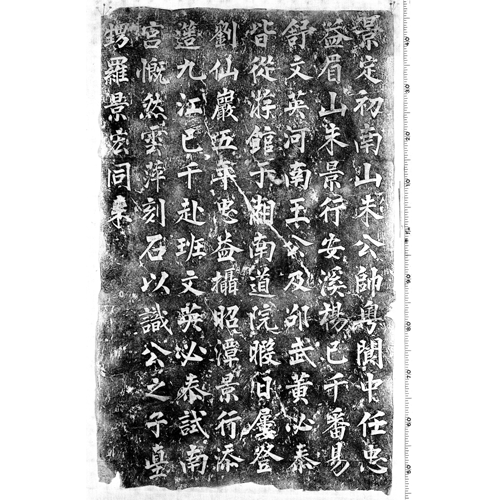 景定初南山朱公帥粤閫中任忠
益眉山朱景行安溪楊巳千番昜
舒文英河南王公及邵武黄必泰
皆從游館于湘南道院暇日屢登
劉仙巖五年忠益攝昭潭景行添
遣九江巳千赴班文英必泰試南
宮慨然雲萍刻石以識公之子塈
鍔羅景宏同來